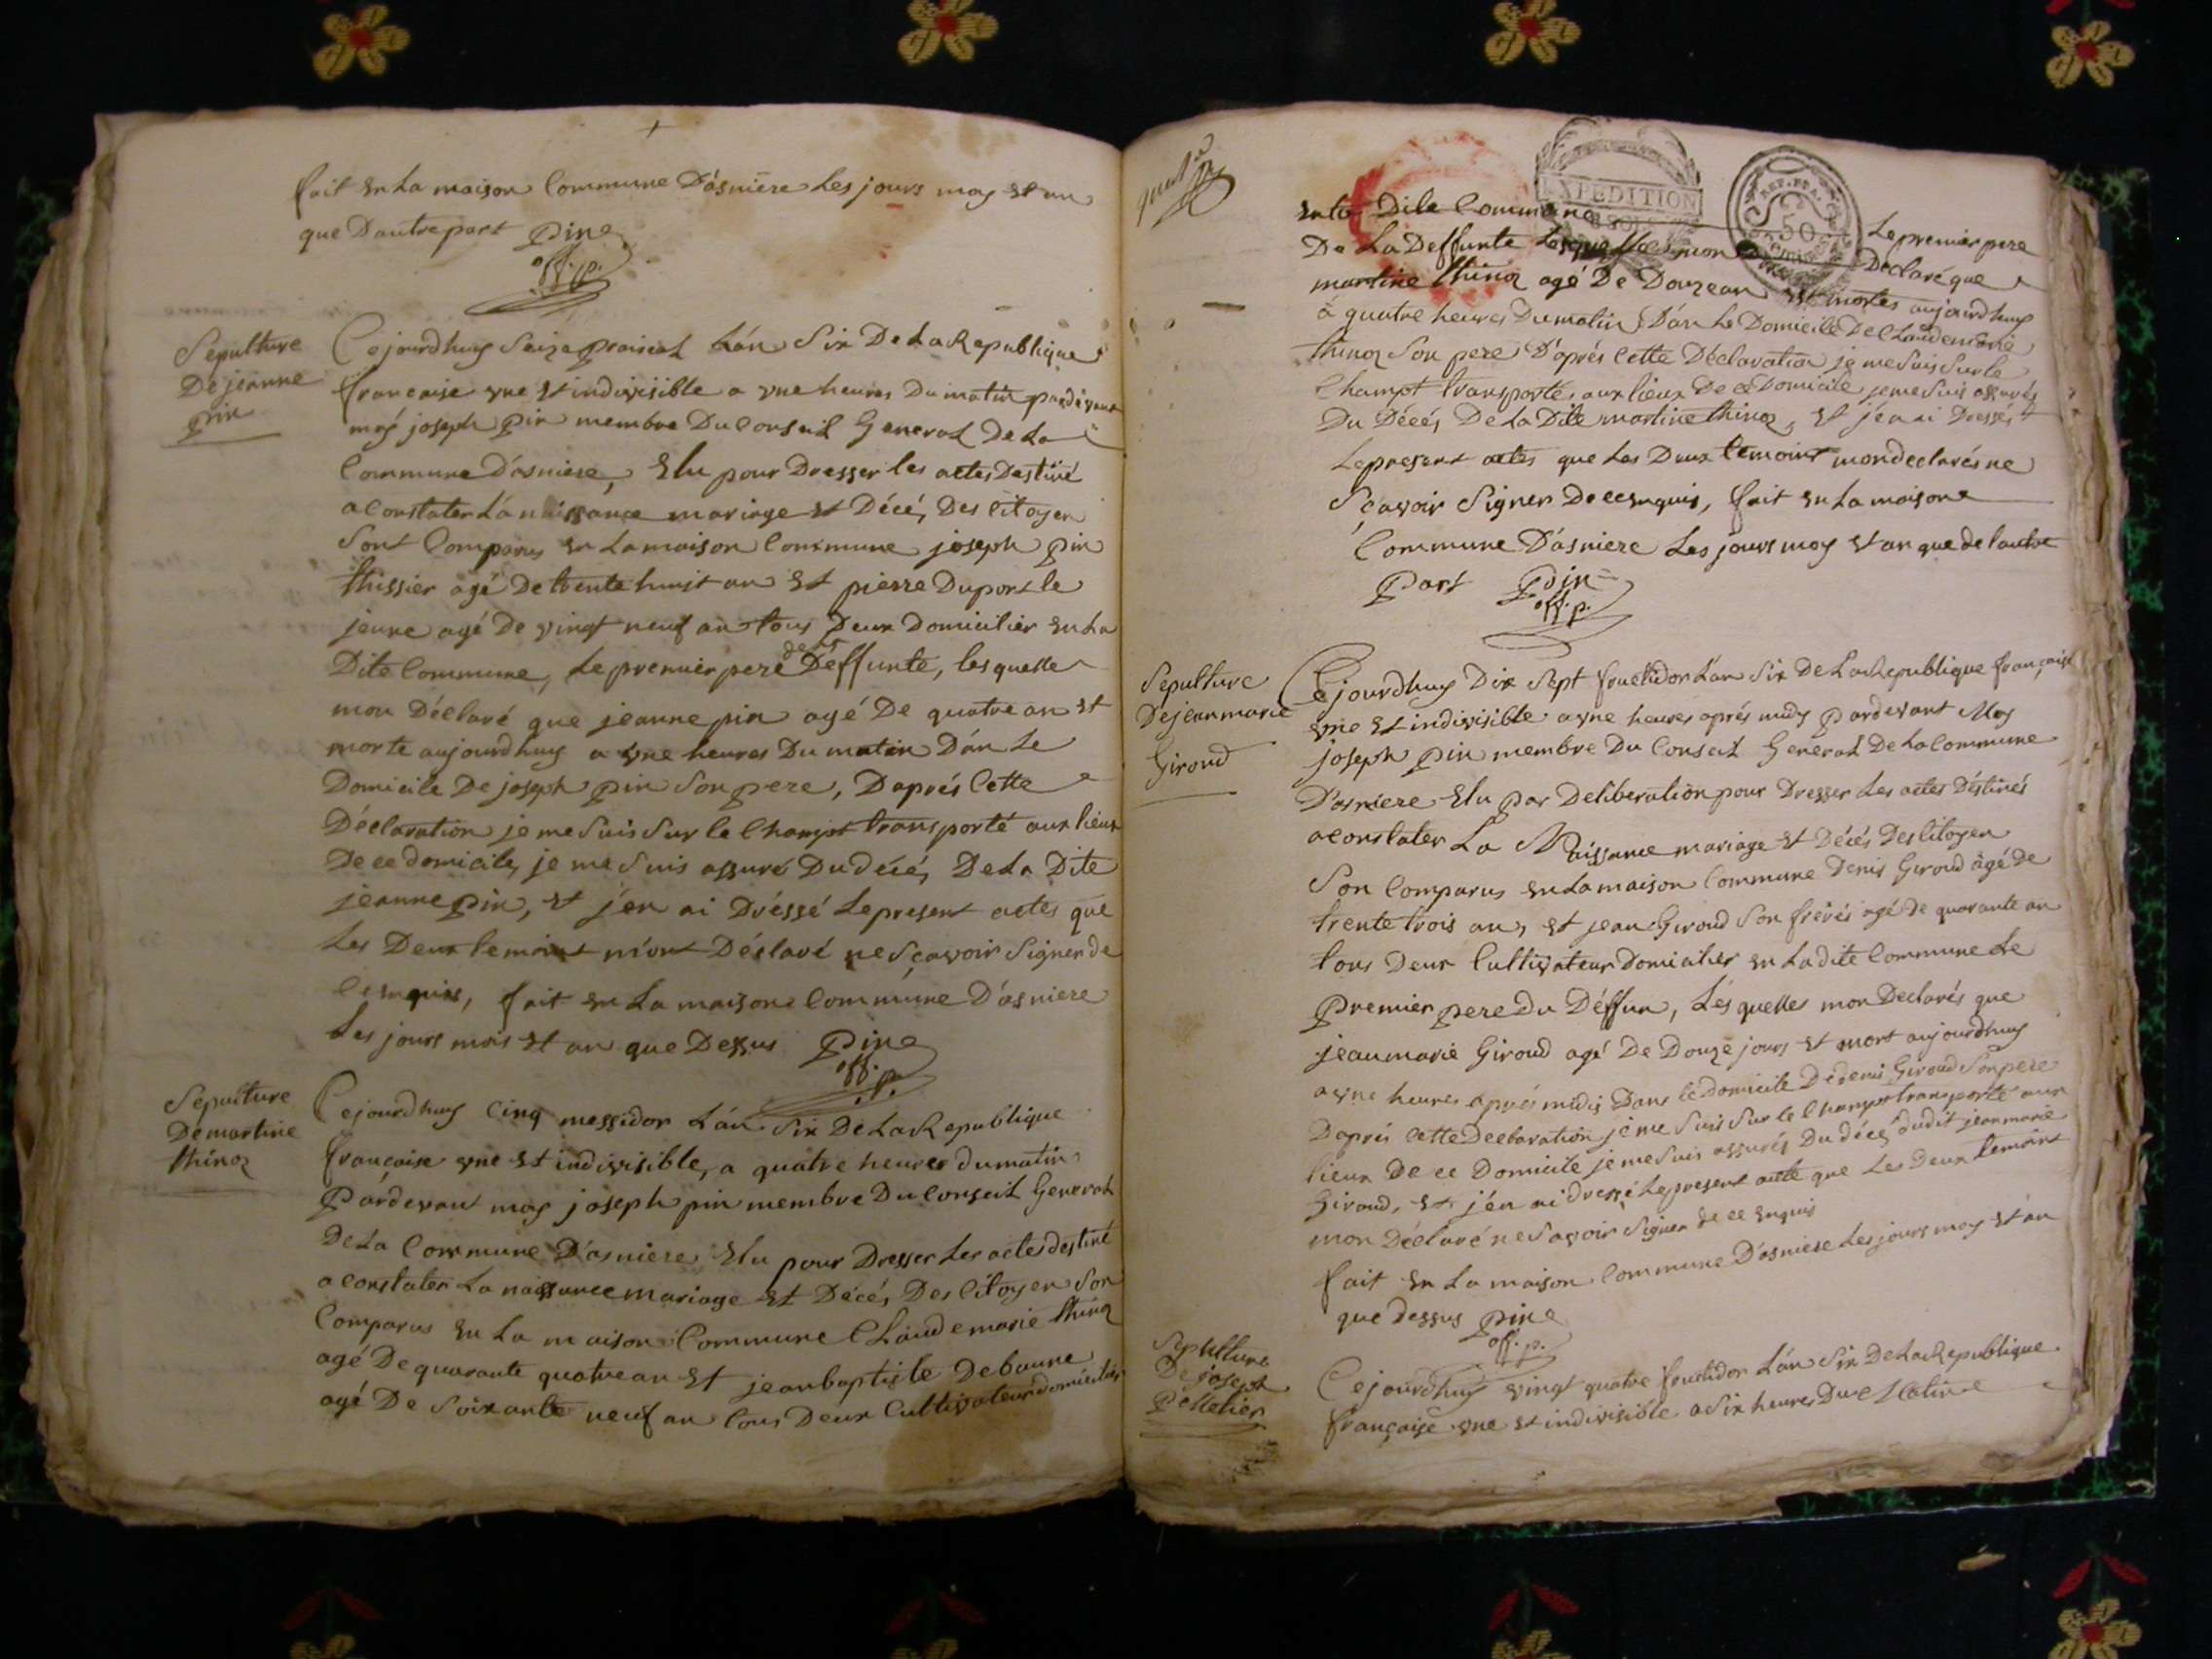 fait En La maison Commune D'asniere Les jours moy Et an
que D'autre part pine
off. p.
Sepulture
De jeanne
pin
Cejourdhuy Seize prairial L'án Six De La Republique
francaise vne Et indivisible a vne heures Du matin pardevant
moy joseph pin membre Du Conseil General De La
Commune D'asniere, Elu pour Dresser les actes Destiné
a Constater La naissance mariage Et Décé, Des Citoyen
Sont Comparus En La maison Commune joseph pin
thissier agé De trente huit an Et pierre Duport le
jeune agé De vingt neuf an tous Deux Domicilier En La
Dite Commune, Le premier pere de la Deffunte, lesquelle
mon Déclaré que jeanne pin agé De quatre an Et
morte aujourdhuy a vne heures Du matin D'án Le
Domicile De joseph pin Son pere, D'aprés Cette
Déclaration je me Suis Sur le Champt transporté aux lieux
De ce domicile, je me Suis assuré Du décé, De La Dite
jeanne pin, Et j'en ai Dréssé Le present actes que
Les Deux temoint m'ont Déclaré ne Sçavoir Signer de
Ce enquis, fait En La maison Commune D'asniere
Les jours mois Et an que Dessus Pine
off. p.
Sepulture
De martine
thinoz
Cejourdhuy Cinq messidor L'án Six De La Republique
francaise vne Et indivisible, a quatre heures du matin
Párdevant moy joseph pin membre Du Conseil General
De La Commune D'asniere Elu pour Dresser Les actes destiné
a Constater La naissance mariage Et Décé, Des Citoyen Son
Comparus En La maison Commune Claude marie thinoz
agé De quarante quatre an Et jean baptiste Debaune
agé De Soixante neuf an tous Deux Cultivateur domicilier
En La Dite Commune Le premier pere
EXPEDITION
REP. FRA.
50
De La Deffunte Lesquelles mon Declaré que
martine thinoz agé De Douze an Et mortes aujourdhuy
à quatre heures Du matin D'án Le Domicile De Claude marie
thinoz Son pere D'aprés Cette Déclaration je me Suis Sur le
Champt transportés aux lieux De ce Domicile je me Suis assurés
Du Décés, De La Dite martine thinoz, Et j'en ai Dressés
Le present actes que Les Deux temoint mon declarés ne
Sçavoir Signer De ce enquis, fait En La maison
Commune D'asniere Les jours moy Et an que de l'autre
Part Pin
off. p.
Sepulture
De jean marie
Giroud
Cejourdhuy Dix Sept fructidor L'an Six De La Republique française
vne Et indivisible a vne heures aprés midy pardevant Moy
joseph pin membre Du Conseil General De La Commune
D'asniere Elu par Deliberation pour Dresser Les actes Déstinés
a Constater La Naissance mariage Et Décés Des Citoyen
Son Comparus En La maison Commune Denis Giroud àgé de
trente trois an, Et jean Giroud Son frérés agé de quarante an
tous Deux Cultivateur Domicilier En La dite Commune Le
Premier pere du Déffun, Lésquelles mon Declarés que
jean marie Giroud agé De Douze jours Et mort aujourdhuy
a vne heures aprés midis Dans le domicile De denis Giroud Son pere
D'aprés Cette Declaration je me Suis Sur le Champt transporté aux
lieux De ce Domicile je me Suis assurés Du décé dudit jean marie
Giroud, Et j'én ai dressé Le present acte que Les Deux temoint
mon Déclaré ne Savoir Signer De ce enquis
fait En La maison Commune D'asniere Les jours moy Et án
que dessus pine
off. p.
Sepulture
De joseph
Pelletier
Cejourdhuy vingt quatre fructidor L'án Six De La Republique
française vne Et indivisible a Six heures Du Matin